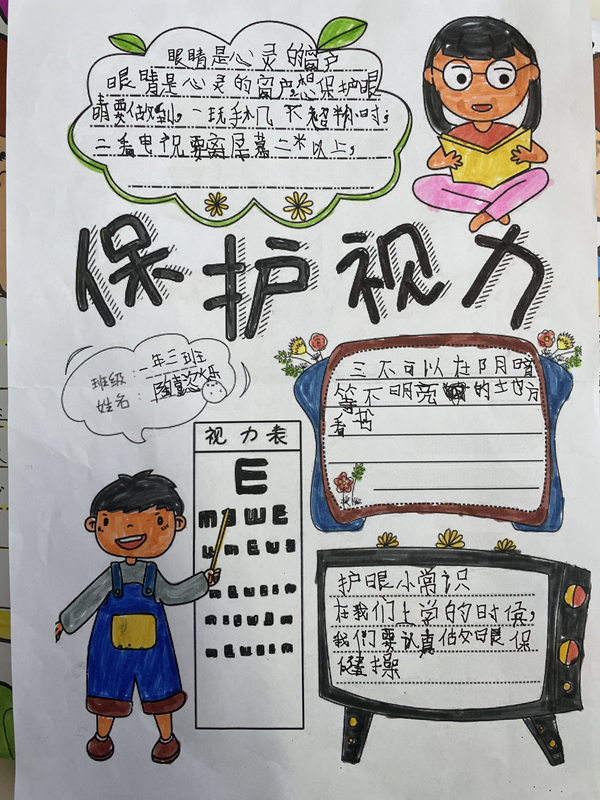 眼睛是心灵的窗户
眼睛是心灵的窗户想保护眼
睛要做到，一玩手机不超时；
二看电视要离屏幕二米以上，
保护视力
班级：一年三班
姓名：
三不可以在阴暗
等不明亮的地方
看书
视力表
E
护眼小常识
在我们上学的时候，
我们要认真做眼保
健操